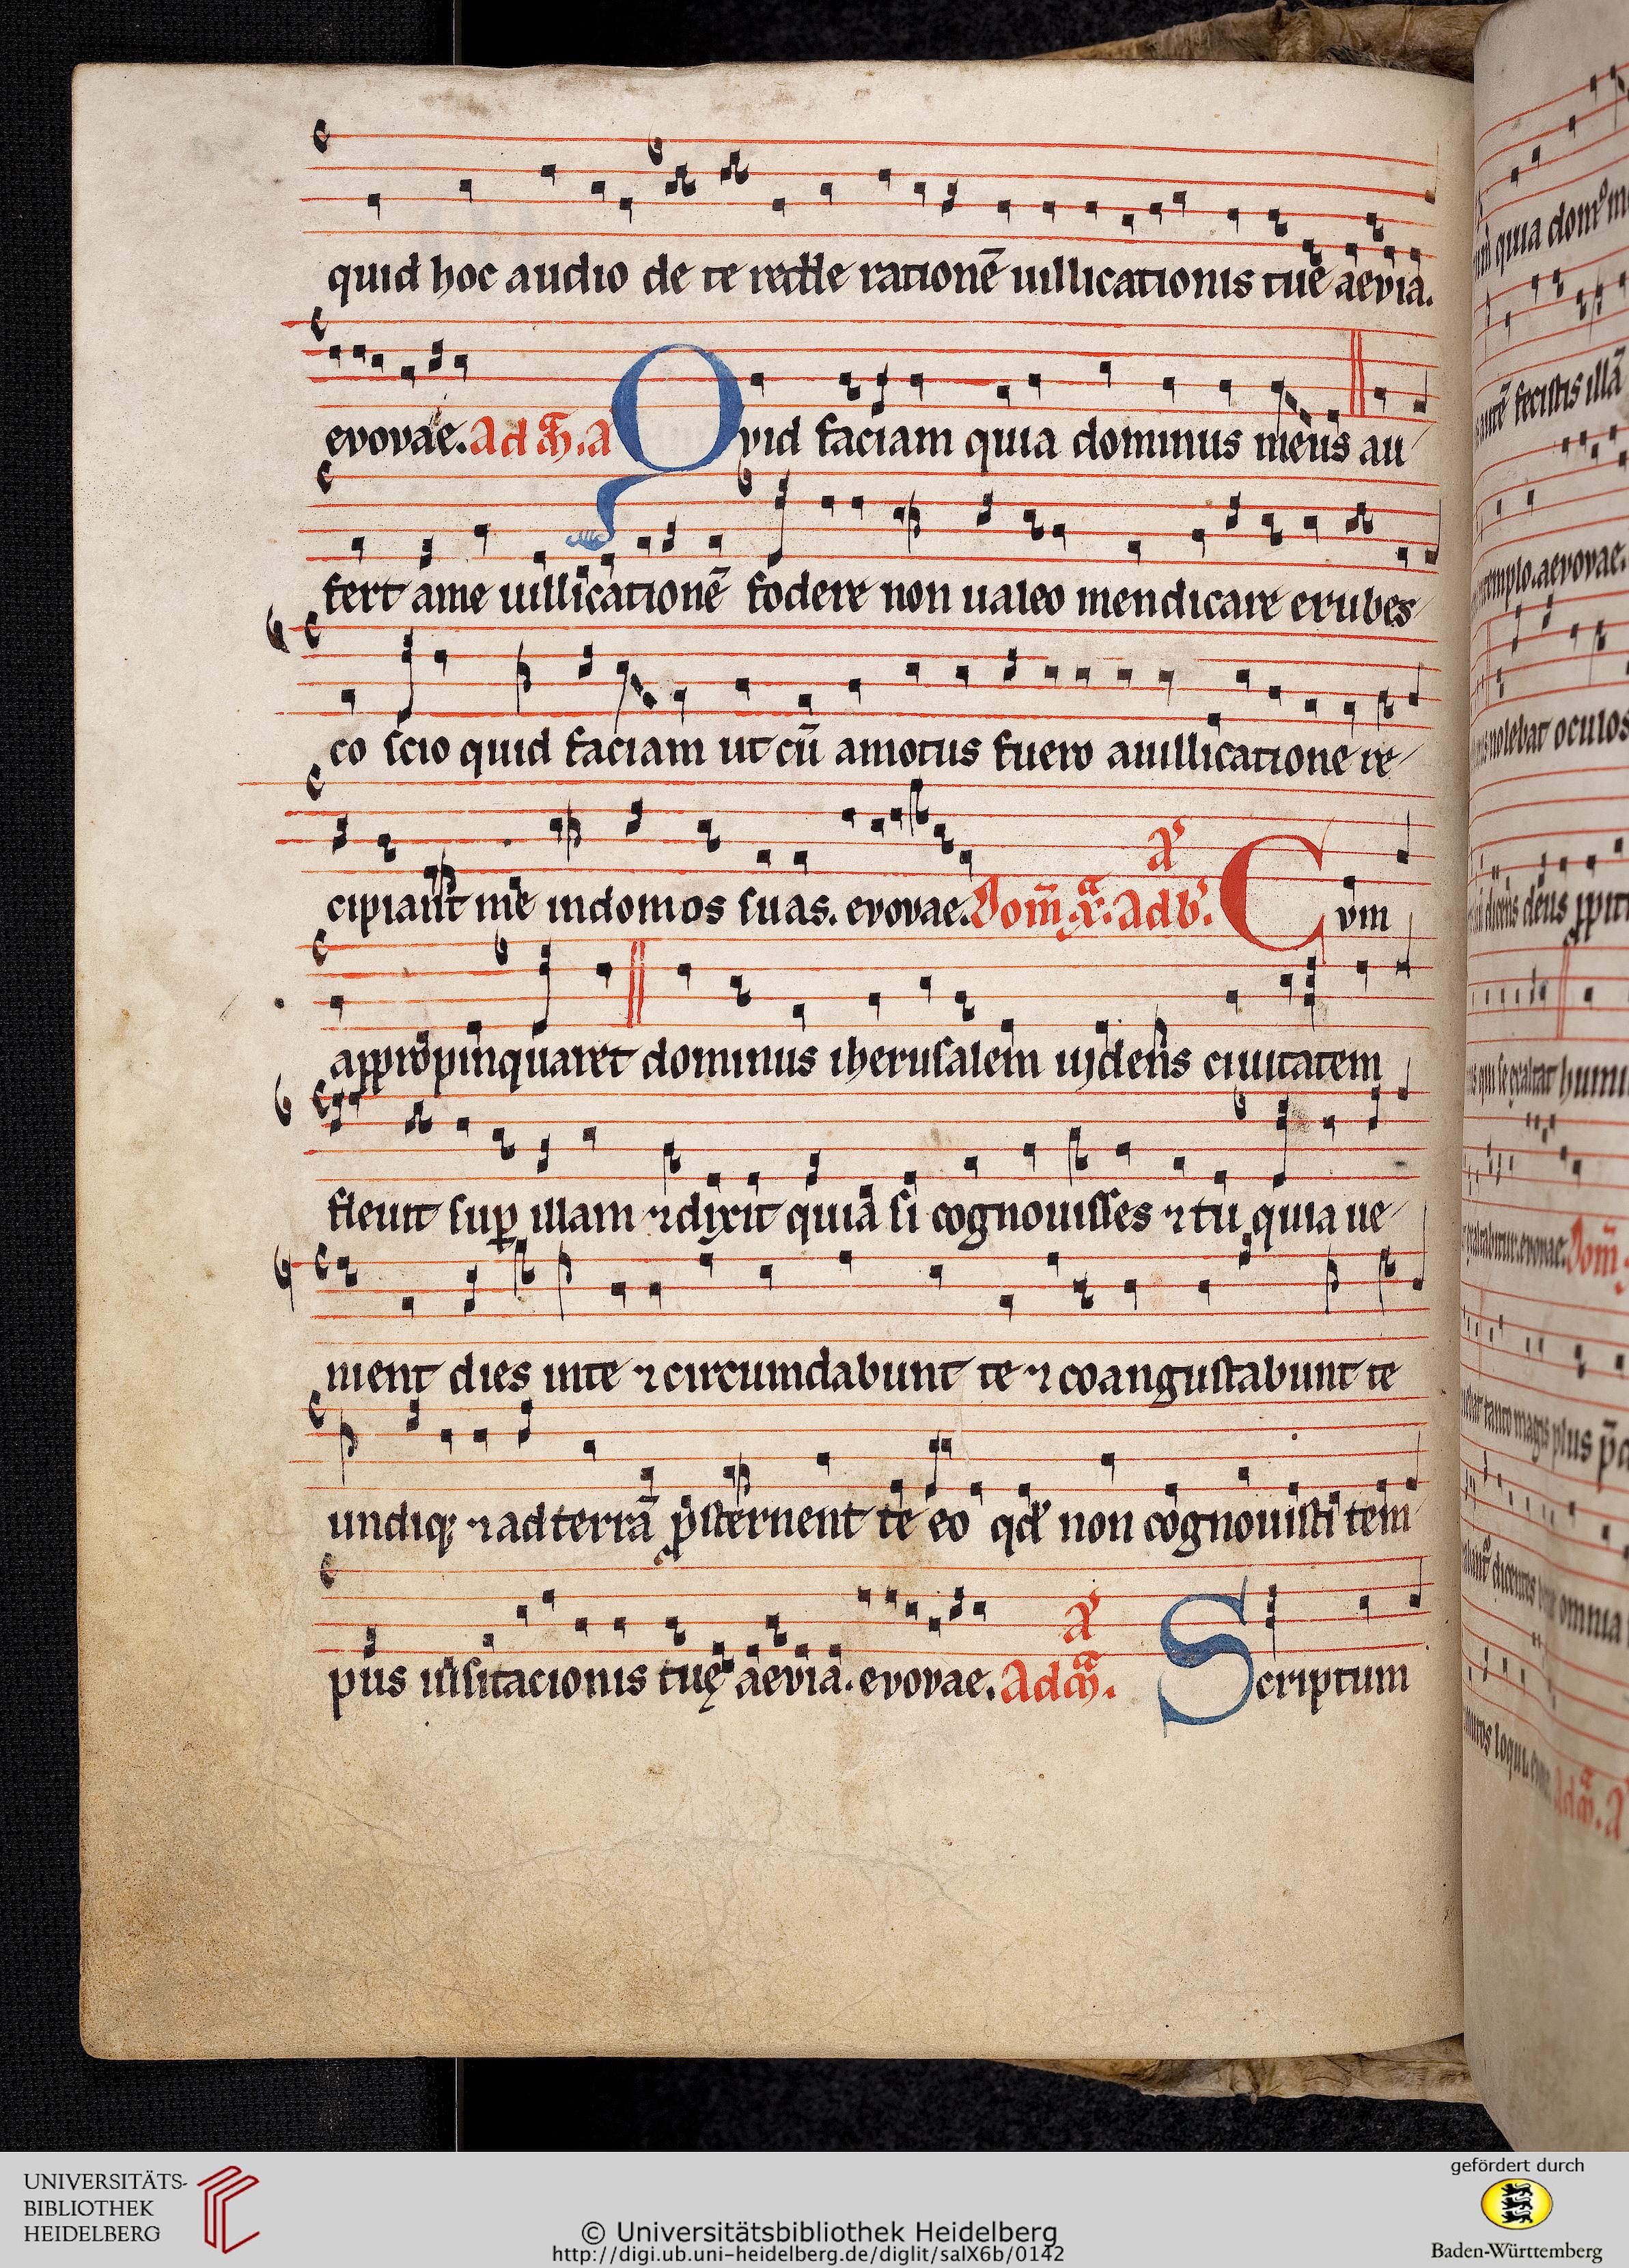 quid hoc audio de te redde rationē uillicationis tue aevia.
evovae. Ad m̄. a Qvid faciam quia dominus meus au
fert ame uillicationē fodere non ualeo mendicare erubes
co scio quid faciam ut cū amotus fuero auillicatione re
cipiant me indomos suas. evovae. Dom̄. x. Ad b'. a' Cvm
appropinquaret dominus iherusalem uidens ciuitatem
fleuit sup illam ⁊ dixit quia si cognouisses ⁊ tu quia ue
nient dies inte ⁊ circumdabunt te ⁊ coangustabunt te
undiq; ⁊ ad terrā psternent te eo qd' non cognouisti tem
pus uisitacionis tuę aevia. evovae. Ad m. a' Scriptum
UNIVERSITÄTS-
BIBLIOTHEK
HEIDELBERG
© Universitätsbibliothek Heidelberg
http://digi.ub.uni-heidelberg.de/diglit/salX6b/0142
gefördert durch
Baden-Württemberg